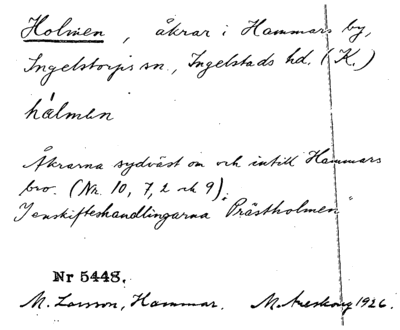 Holmen, åkrar i Hammars by,
Ingelstorps sn., Ingelstads hd. (K.)
hàlmen
Åkrarna sydväst om och intill Hammars
bro. (Nr. 10, 7, 2 och 9).
I enskifteshandlingarna "Prästholmen"
Nr 5448.
M. Larsson, Hammar. M. Areskog 1926.